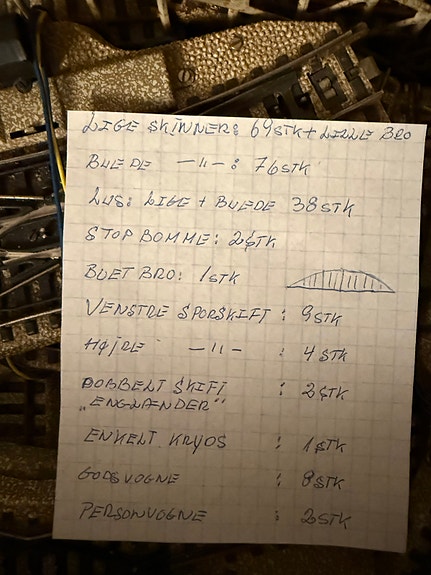 LIGE SKINNER: 69 STK + LILLE BRO
BUEDE —"—: 76 STK
LUS: LIGE + BUEDE 38 STK
STOP BOMME: 2 STK
BUET BRO: 1 STK
VENSTRE SPORSKIFT : 9 STK
HØJRE —"— : 4 STK
DOBBELT SKIFT : 2 STK
„ENGLÆNDER"
ENKELT KRYDS : 1 STK
GODSVOGNE : 8 STK
PERSONVOGNE : 2 STK